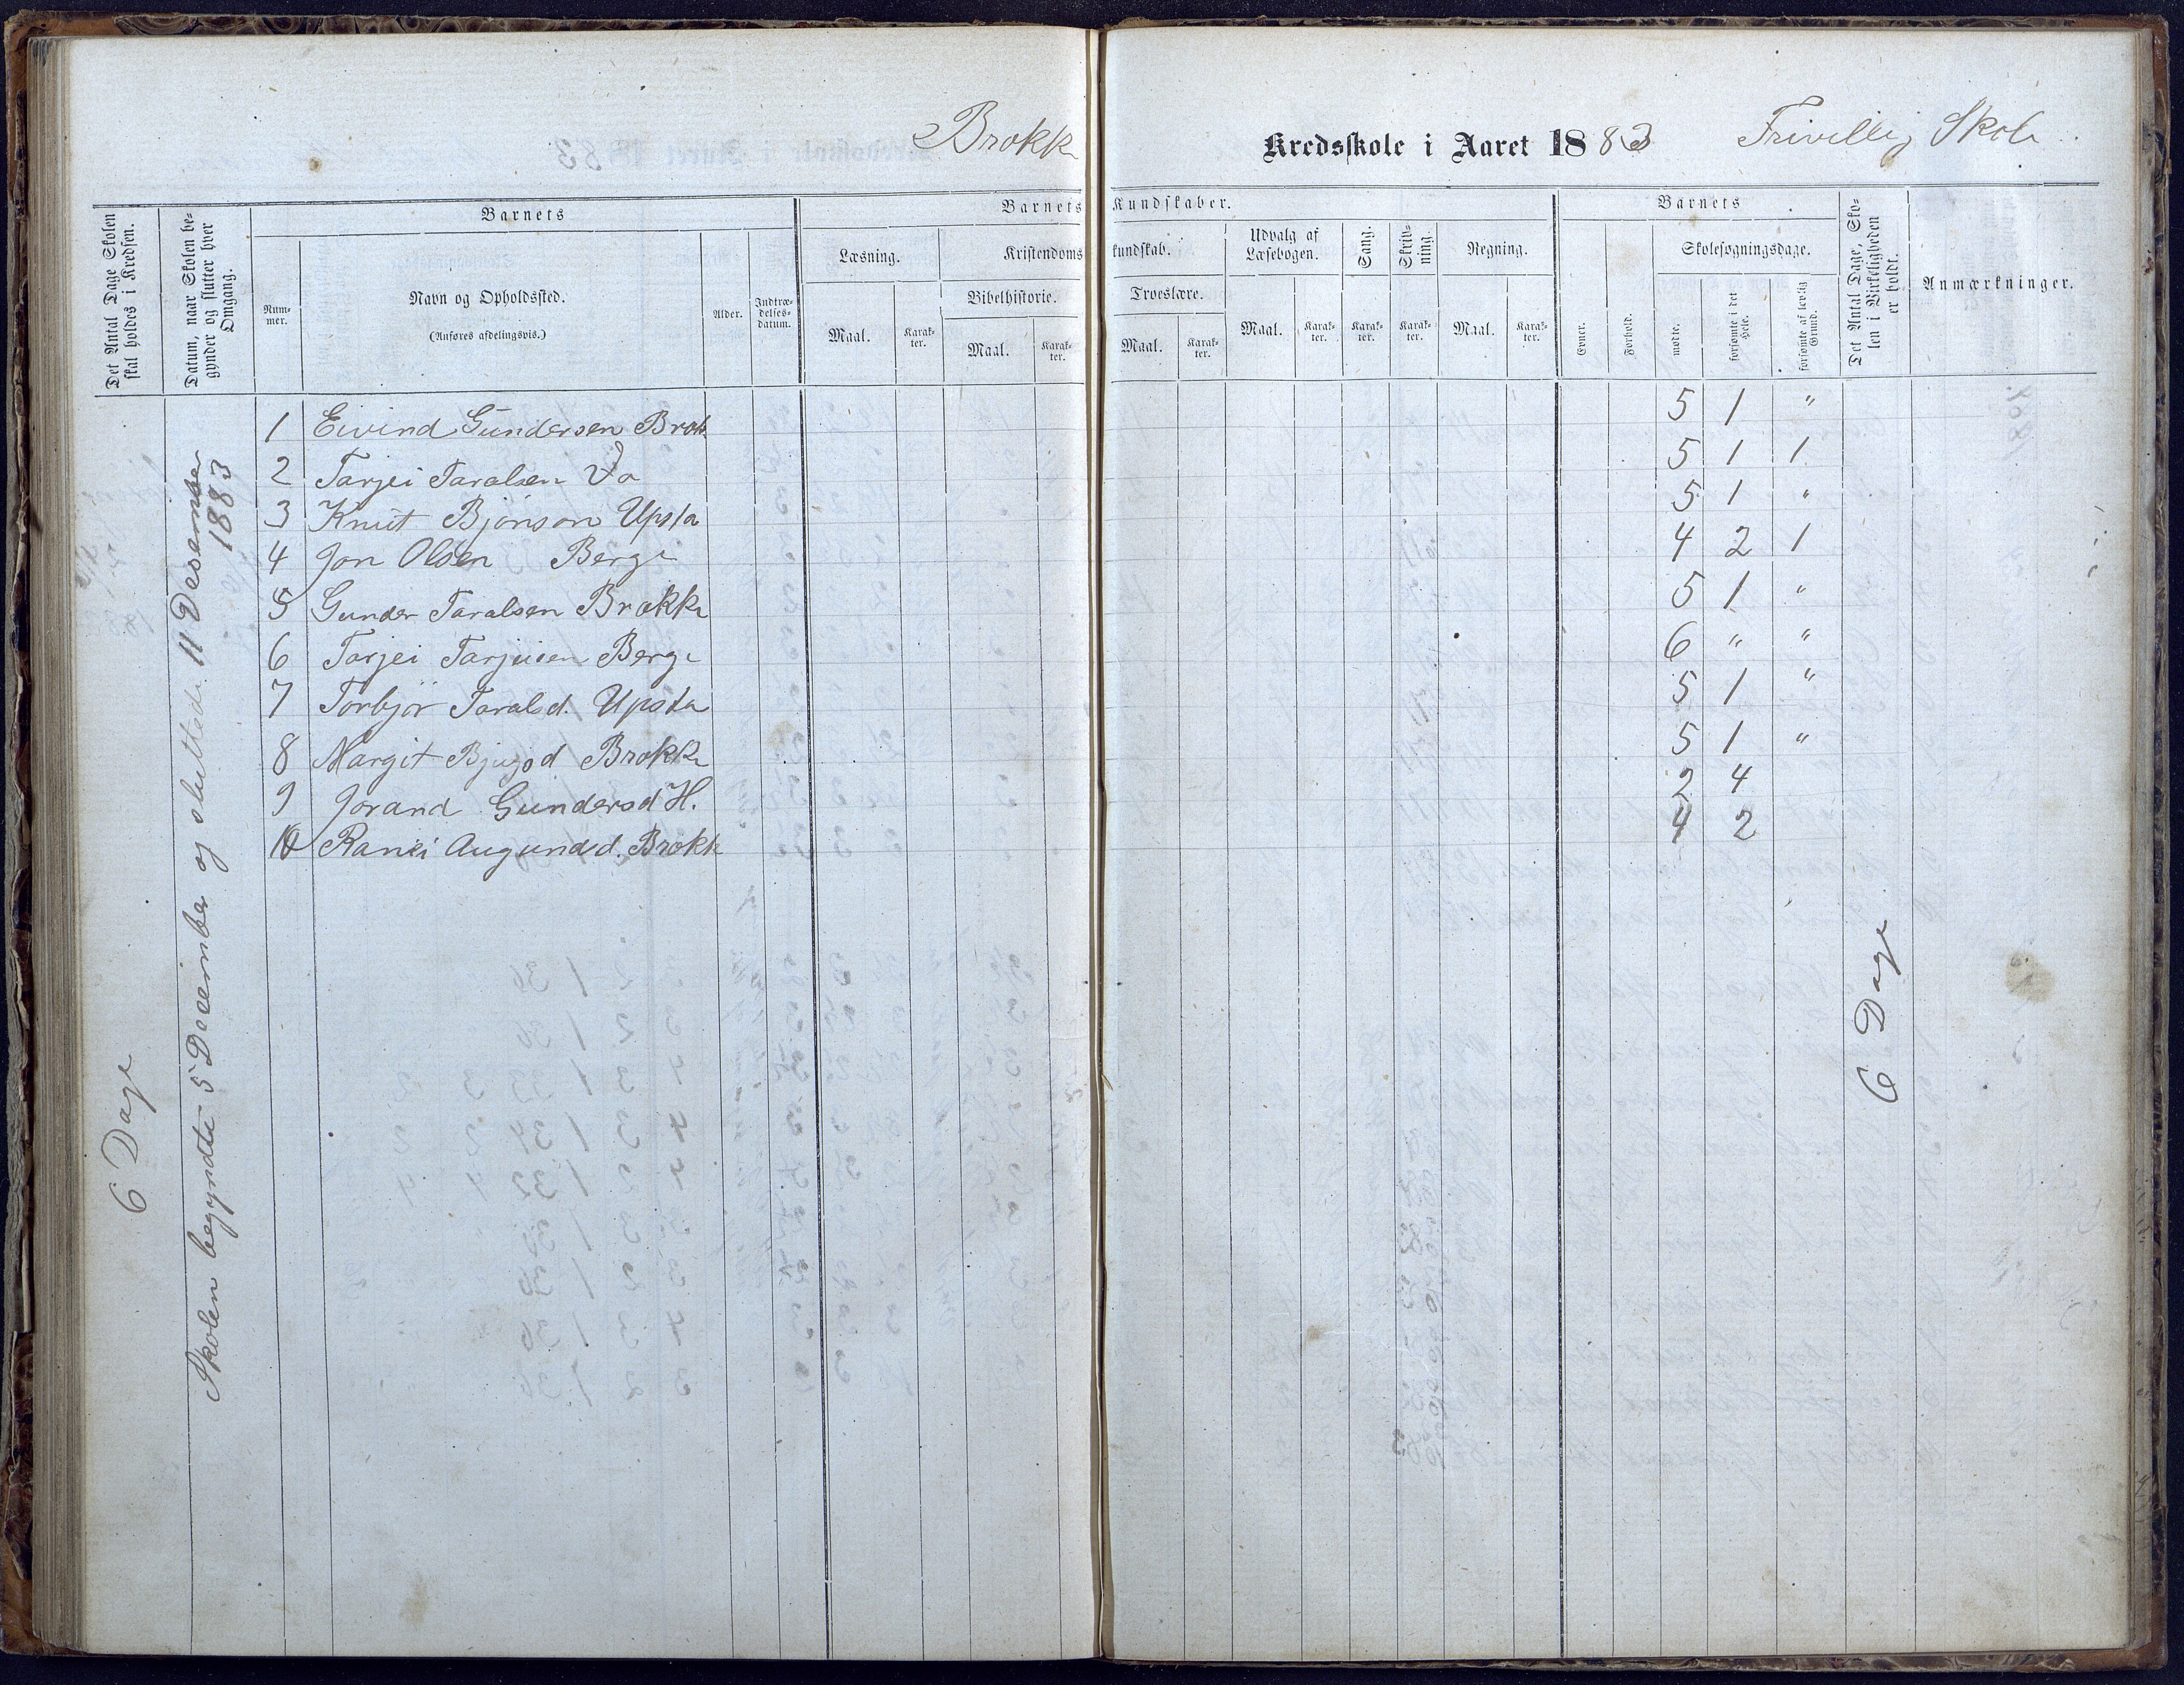 Brokke Kredsskole i Aaret 1883 Frivillig Skole
Det Antal Dage Skolen skal holdes i Kredsen.
Datum, naar Skolen begynder og slutter hver Omgang.
Barnets
Nummer.
Navn og Opholdssted.
(Anføres afdelingsvis.)
Alder.
Indtrædelsesdatum.
Barnets Kundskaber.
Læsning.
Maal. Karakter.
Kristendomskundskab.
Bibelhistorie.
Maal. Karakter.
Troeslære.
Maal. Karakter.
Udvalg af Læsebogen.
Maal. Karakter.
Sang.
Karakter.
Skrivning.
Karakter.
Regning.
Maal. Karakter.
Barnets
Evner.
Forhold.
Skolesøgningsdage.
mødte.
forsømte i det Hele.
forsømte af lovlig Grund.
Det Antal Dage, Skolen i Virkeligheden er holdt.
Anmærkninger.
6 Dage
Skolen begyndte 5 December og sluttede 11 Desember 1883
1 Eivind Gundersen Brok. 5 1 "
2 Tarjei Taralsen Do 5 1 1
3 Knut Bjönson Upsta 5 1 "
4 Jon Olsen Berge 4 2 1
5 Gunder Taralsen Brokke 5 1 "
6 Tarjei Tarjeisen Berge 6 " "
7 Torbjör Taralsd. Upsta 5 1 "
8 Margit Bjugsd Brokke 5 1 "
9 Jorand Gundersd H. 2 4
10 Ranei Augundsd. Brokke 4 2
6 Dage